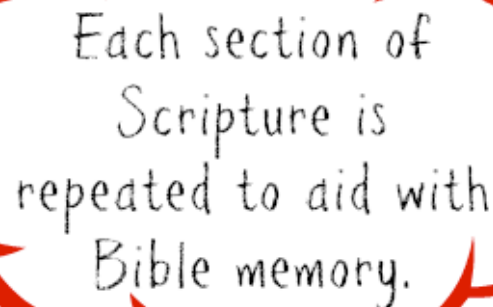 Each section of
Scripture is
repeated to aid with
Bible memory.